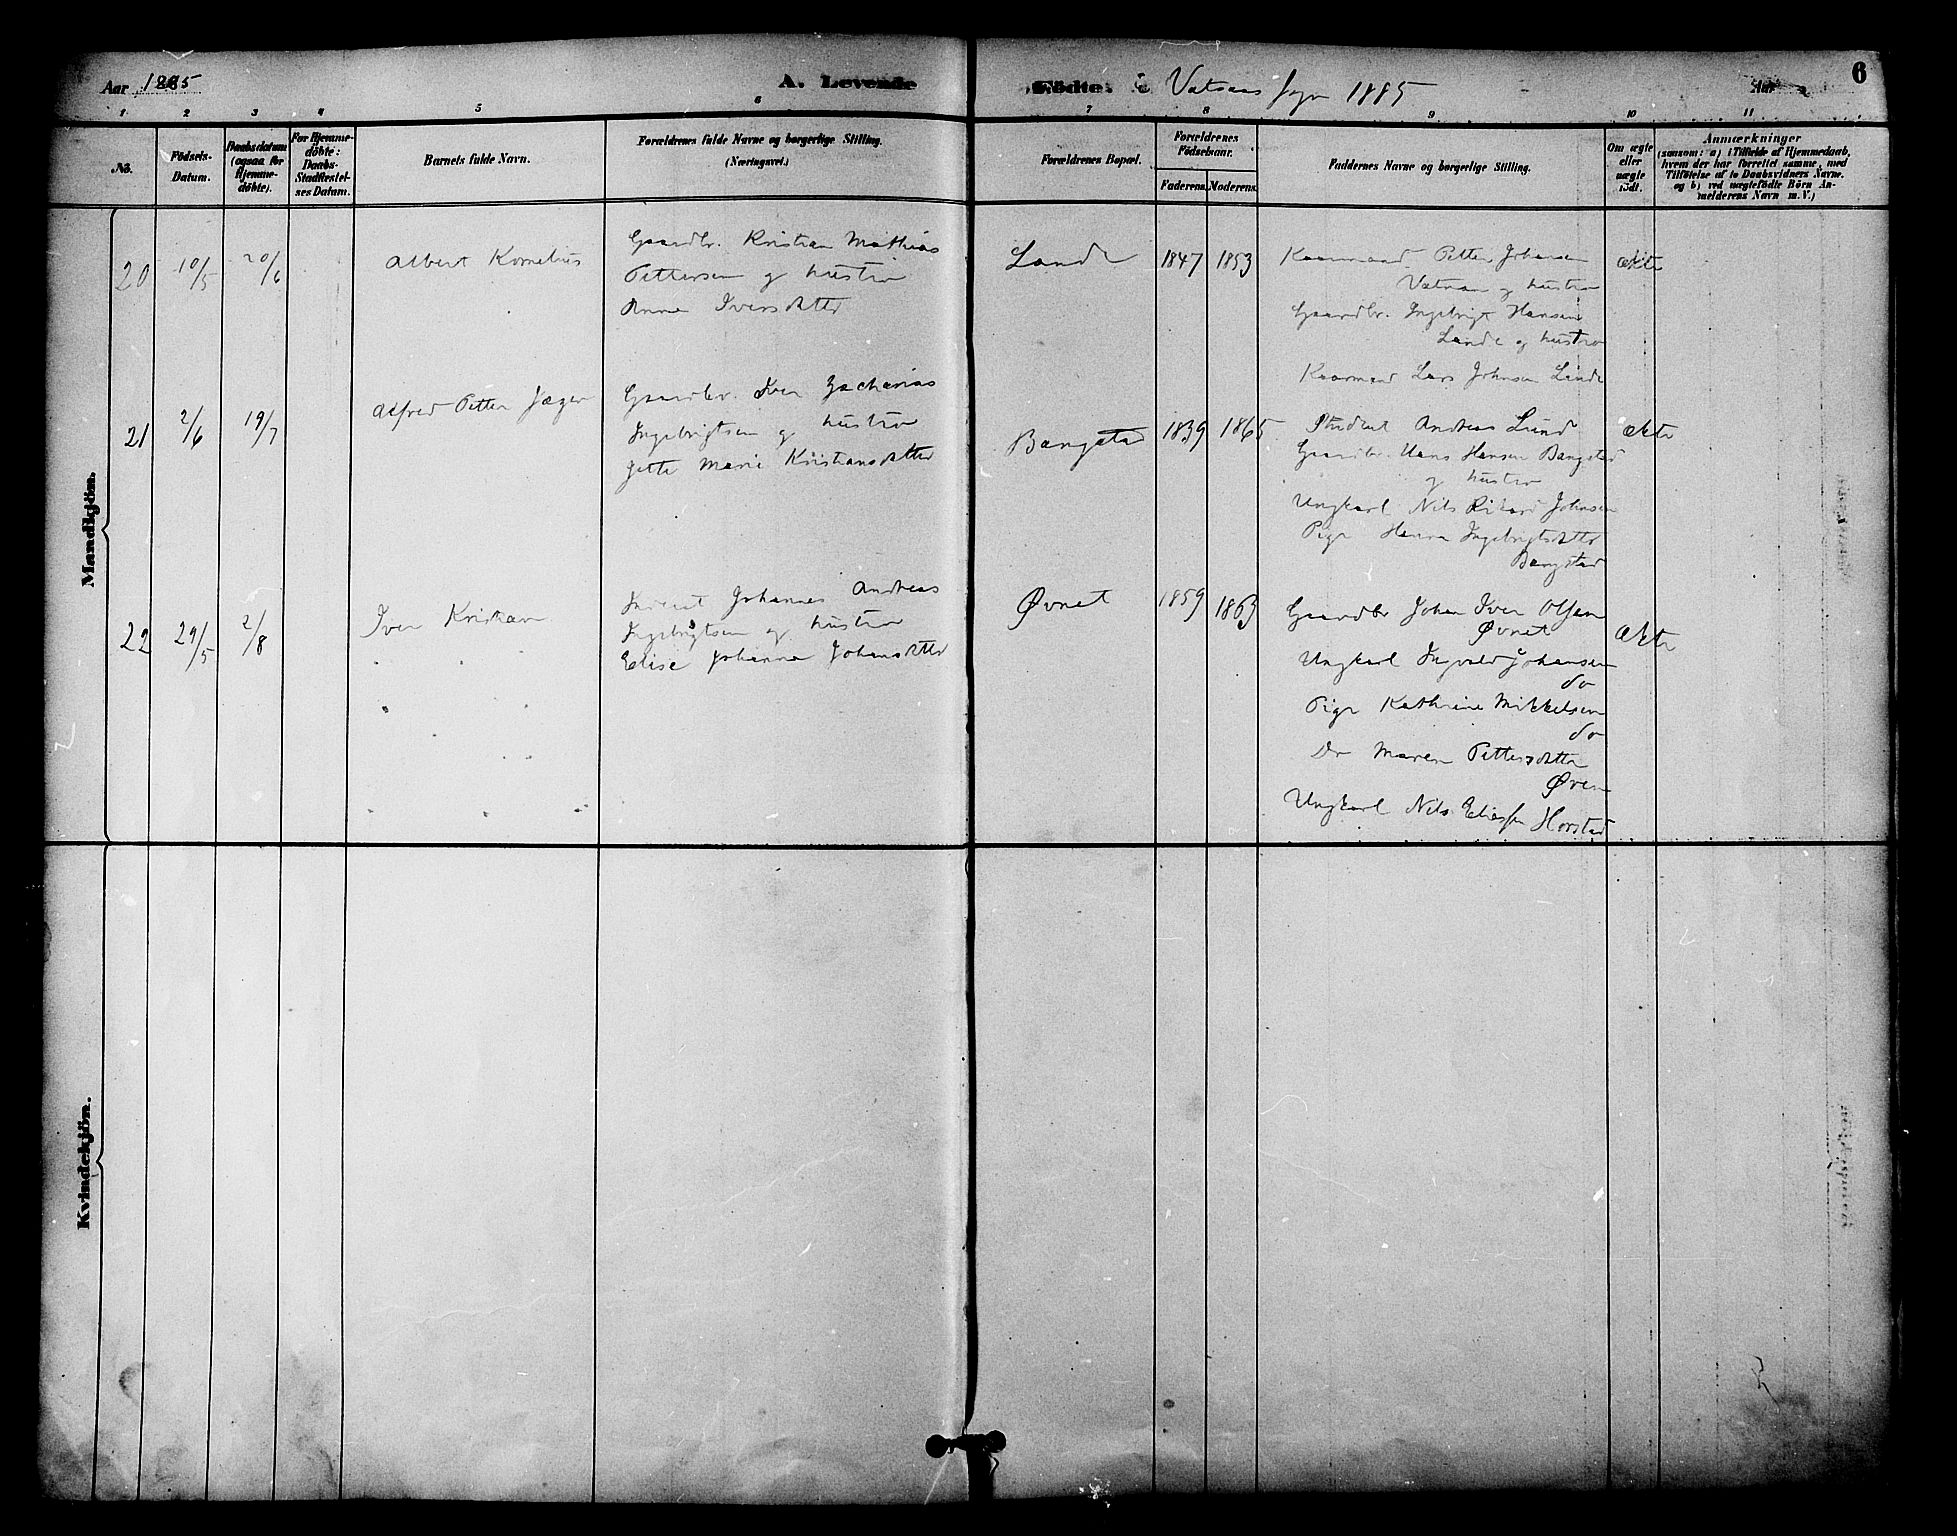 Aar 1885
A. Levende
Födte. i Vatnaas Sogn 1885
Aar
6
1 2 3 4 5 6 7 8 9 10 11
No.
Födsels-Datum.
Daabsdatum (ogsaa for Hjemme-döbte).
For Hjemme-döbte: Daabs-Stadfæstel-ses Datum.
Barnets fulde Navn.
Forældrenes fulde Navne og borgerlige Stilling. (Næringsvei.)
Forældrenes Bopæl.
Forældrenes Födselsaar.
Faderens. Moderens.
Faddernes Navne og borgerlige Stilling.
Om ægte eller uægte födt.
Anmærkninger
(saasom: a) i Tilfælde af Hjemmedaab,
hvem der har forrettet samme, med
Tilföielse af to Daabsvidners Navne.
og b) ved uægtefödte Börn An-
melderens Navn m. V.)
Mandkjön.
20 10/5 20/6
Albert Kornelius
Gaardbr. Kristian Mathias
Pettersen og hustro
Anna Iversdatter
Lande
1847 1853
Kaarmand Petter Johansen
Vatnan og hustro
Gaardbr. Ingebrigt Hansen
Lande og hustro
Kaarmand Lars Johnsen Lande
Ækte
21 2/6 19/7
Alfred Petter Jæger
Gaardbr. Iver Zacharias
Ingebrigtsen og hustro
Jette Marie Kristiansdatter
Bangstad
1839 1865
Student Andreas Lund
Gaardbr. Hans Hansen Bangstad
og hustro
Ungkarl Nils Rikard Johnsen
Pige Hanna Ingebrigtsdatter
Bangstad
Ækte
22 29/5 2/8
Iver Kristian
Inderst Johannes Andreas
Ingebrigtsen og hustro
Elise Johanna Johansdatter
Øvnet
1859 1863
Gaardbr Johan Iver Olsen
Øvnet
Ungkarl Ingvald Johansen
do
Pige Kathrine Mikkelsen
do
Do Maren Pettersdatter
Øvne
Ungkarl Nils Eliassen Horstad
Ækte
Kvindekjön.